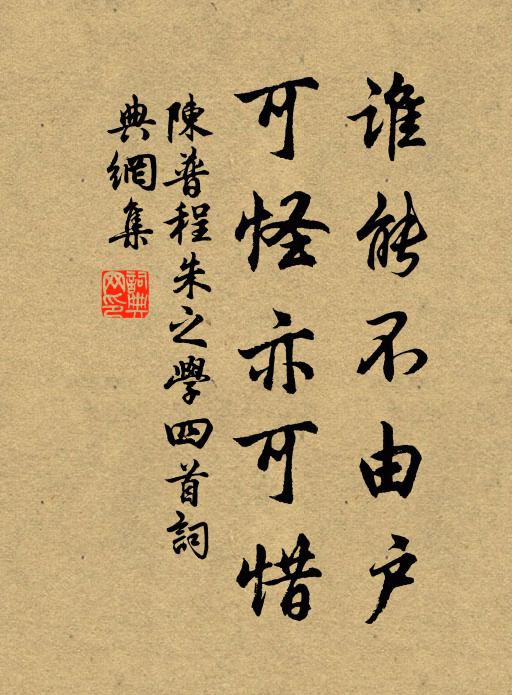 誰能不由户
可怪亦可惜
陳普程朱之學四首詞
典網集
詞典網印